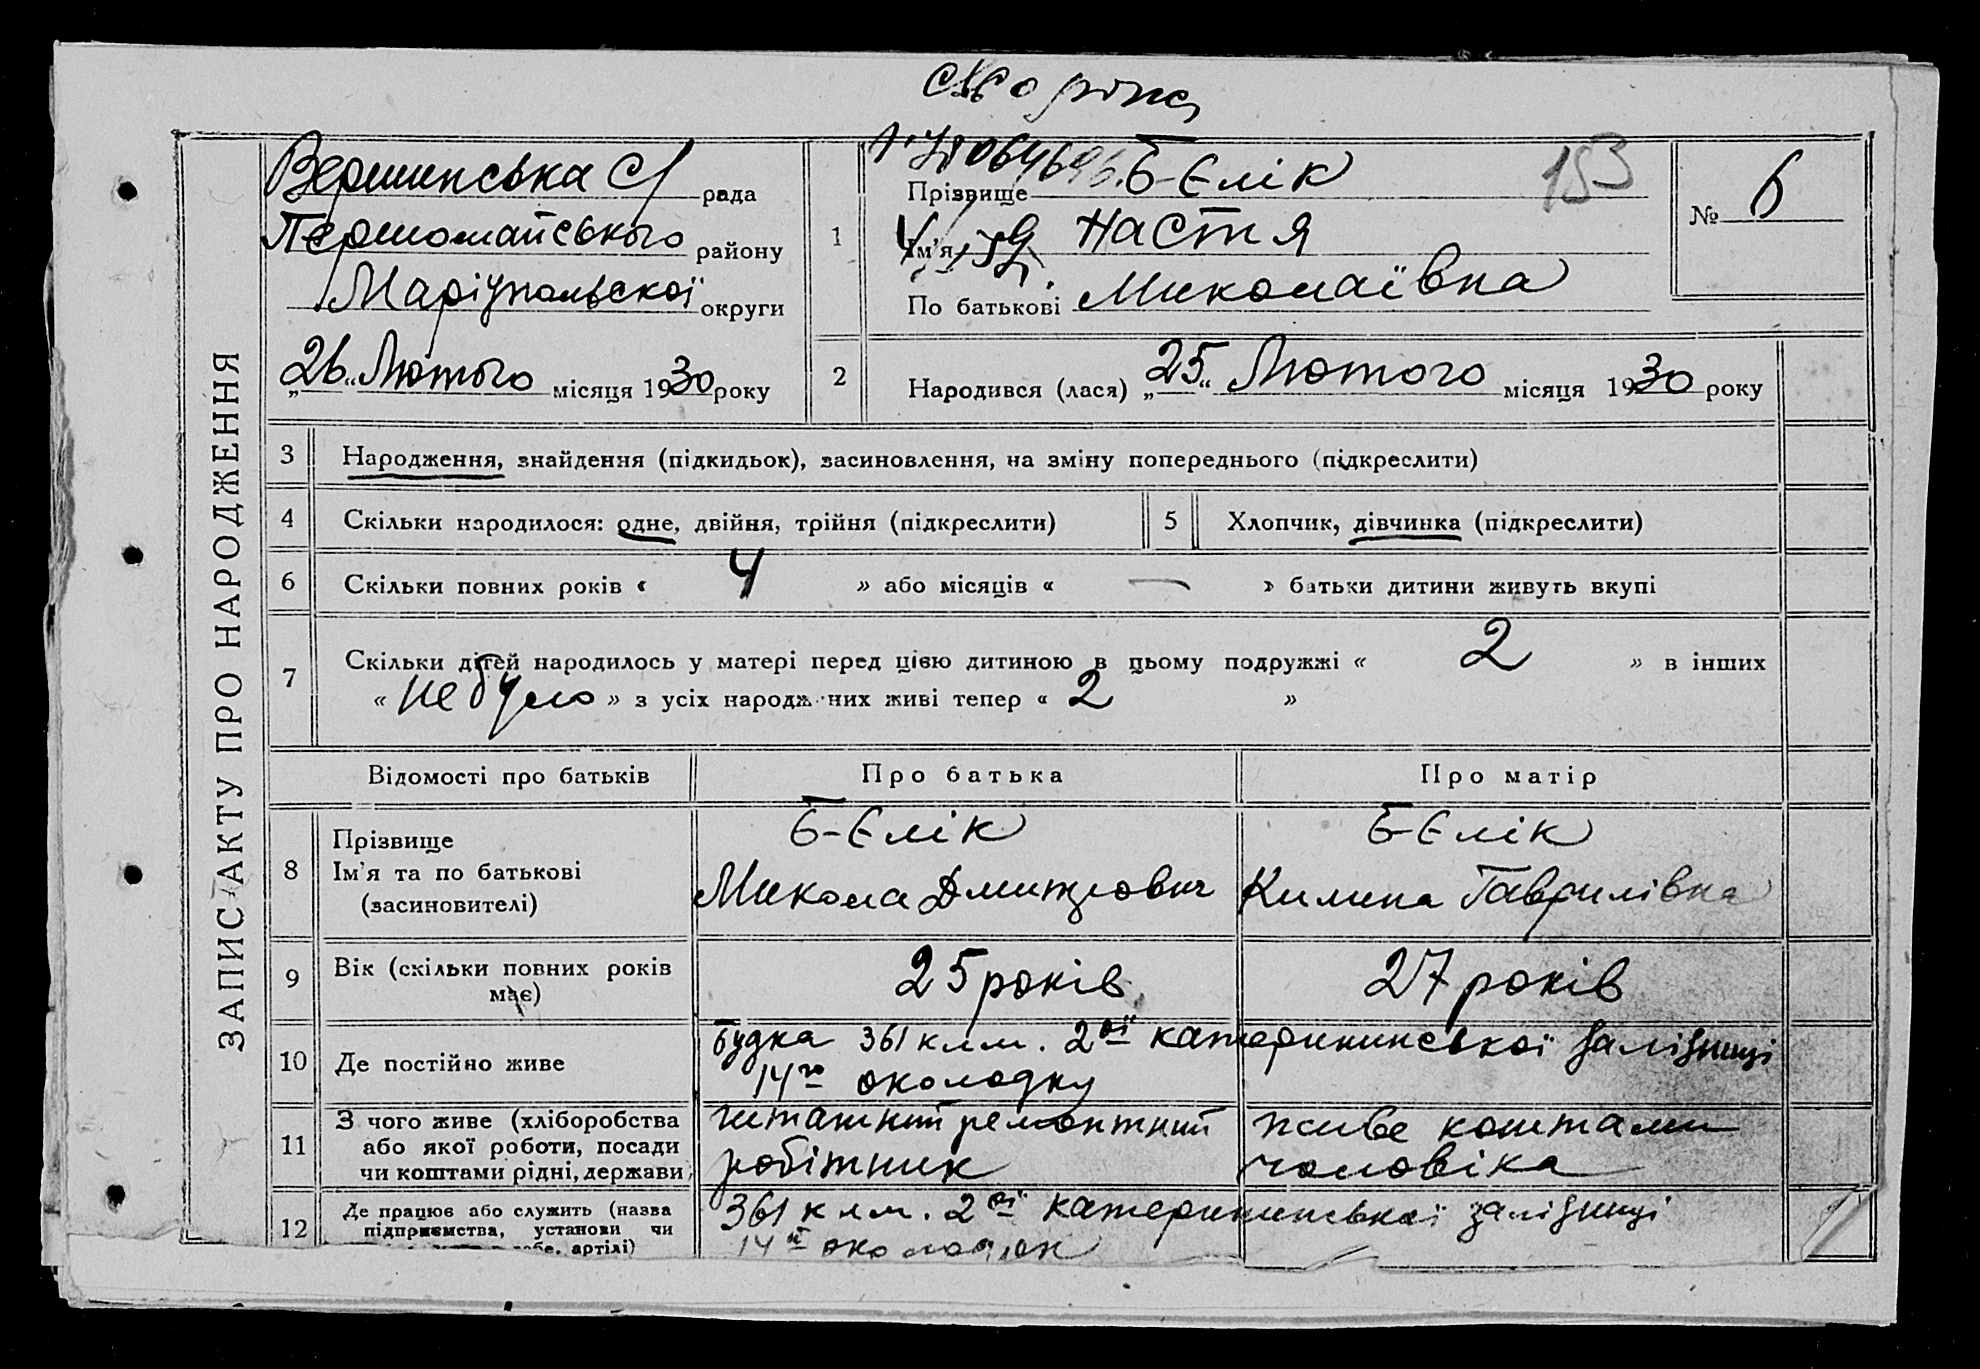 ЗАПИС АКТУ ПРО НАРОДЖЕННЯ
Вершинська с/ рада
Першомайського району
Маріупольської округи
„26“ Лютого місяця 1930 року
1
Прізвище Б-Єлік
Ім'я Настя
По батькові Миколаївна
153
№ 6
2 Народився (лася) „25“ Лютого місяця 1930 року
3 Народження, знайдення (підкидьок), засиновлення, на зміну попереднього (підкреслити)
4 Скільки народилося: одне, двійня, трійня (підкреслити)
5 Хлопчик, дівчинка (підкреслити)
6 Скільки повних років « 4 » або місяців « — » батьки дитини живуть вкупі
7 Скільки дітей народилось у матері перед цією дитиною в цьому подружжі « 2 » в інших
« не було » з усіх народж них живі тепер « 2 »
Відомості про батьків Про батька Про матір
8 Прізвище
Ім'я та по батькові
(засиновителі)
Б-Єлік
Микола Дмитрович
Б-Єлік
Килина Гаврилівна
9 Вік (скільки повних років
має)
25 років
27 років
10 Де постійно живе
будка 361 клм. 2ої катерининської залізниці
14го околодку
11 З чого живе (хліборобства
або якої роботи, посади
чи коштами рідні, держави)
штатний ремонтний
робітник
живе коштами
чоловіка
12 Де працює або служить (назва
підприємства, установи чи
артілі)
361 клм. 2ої катерининської залізниці
14й околодок